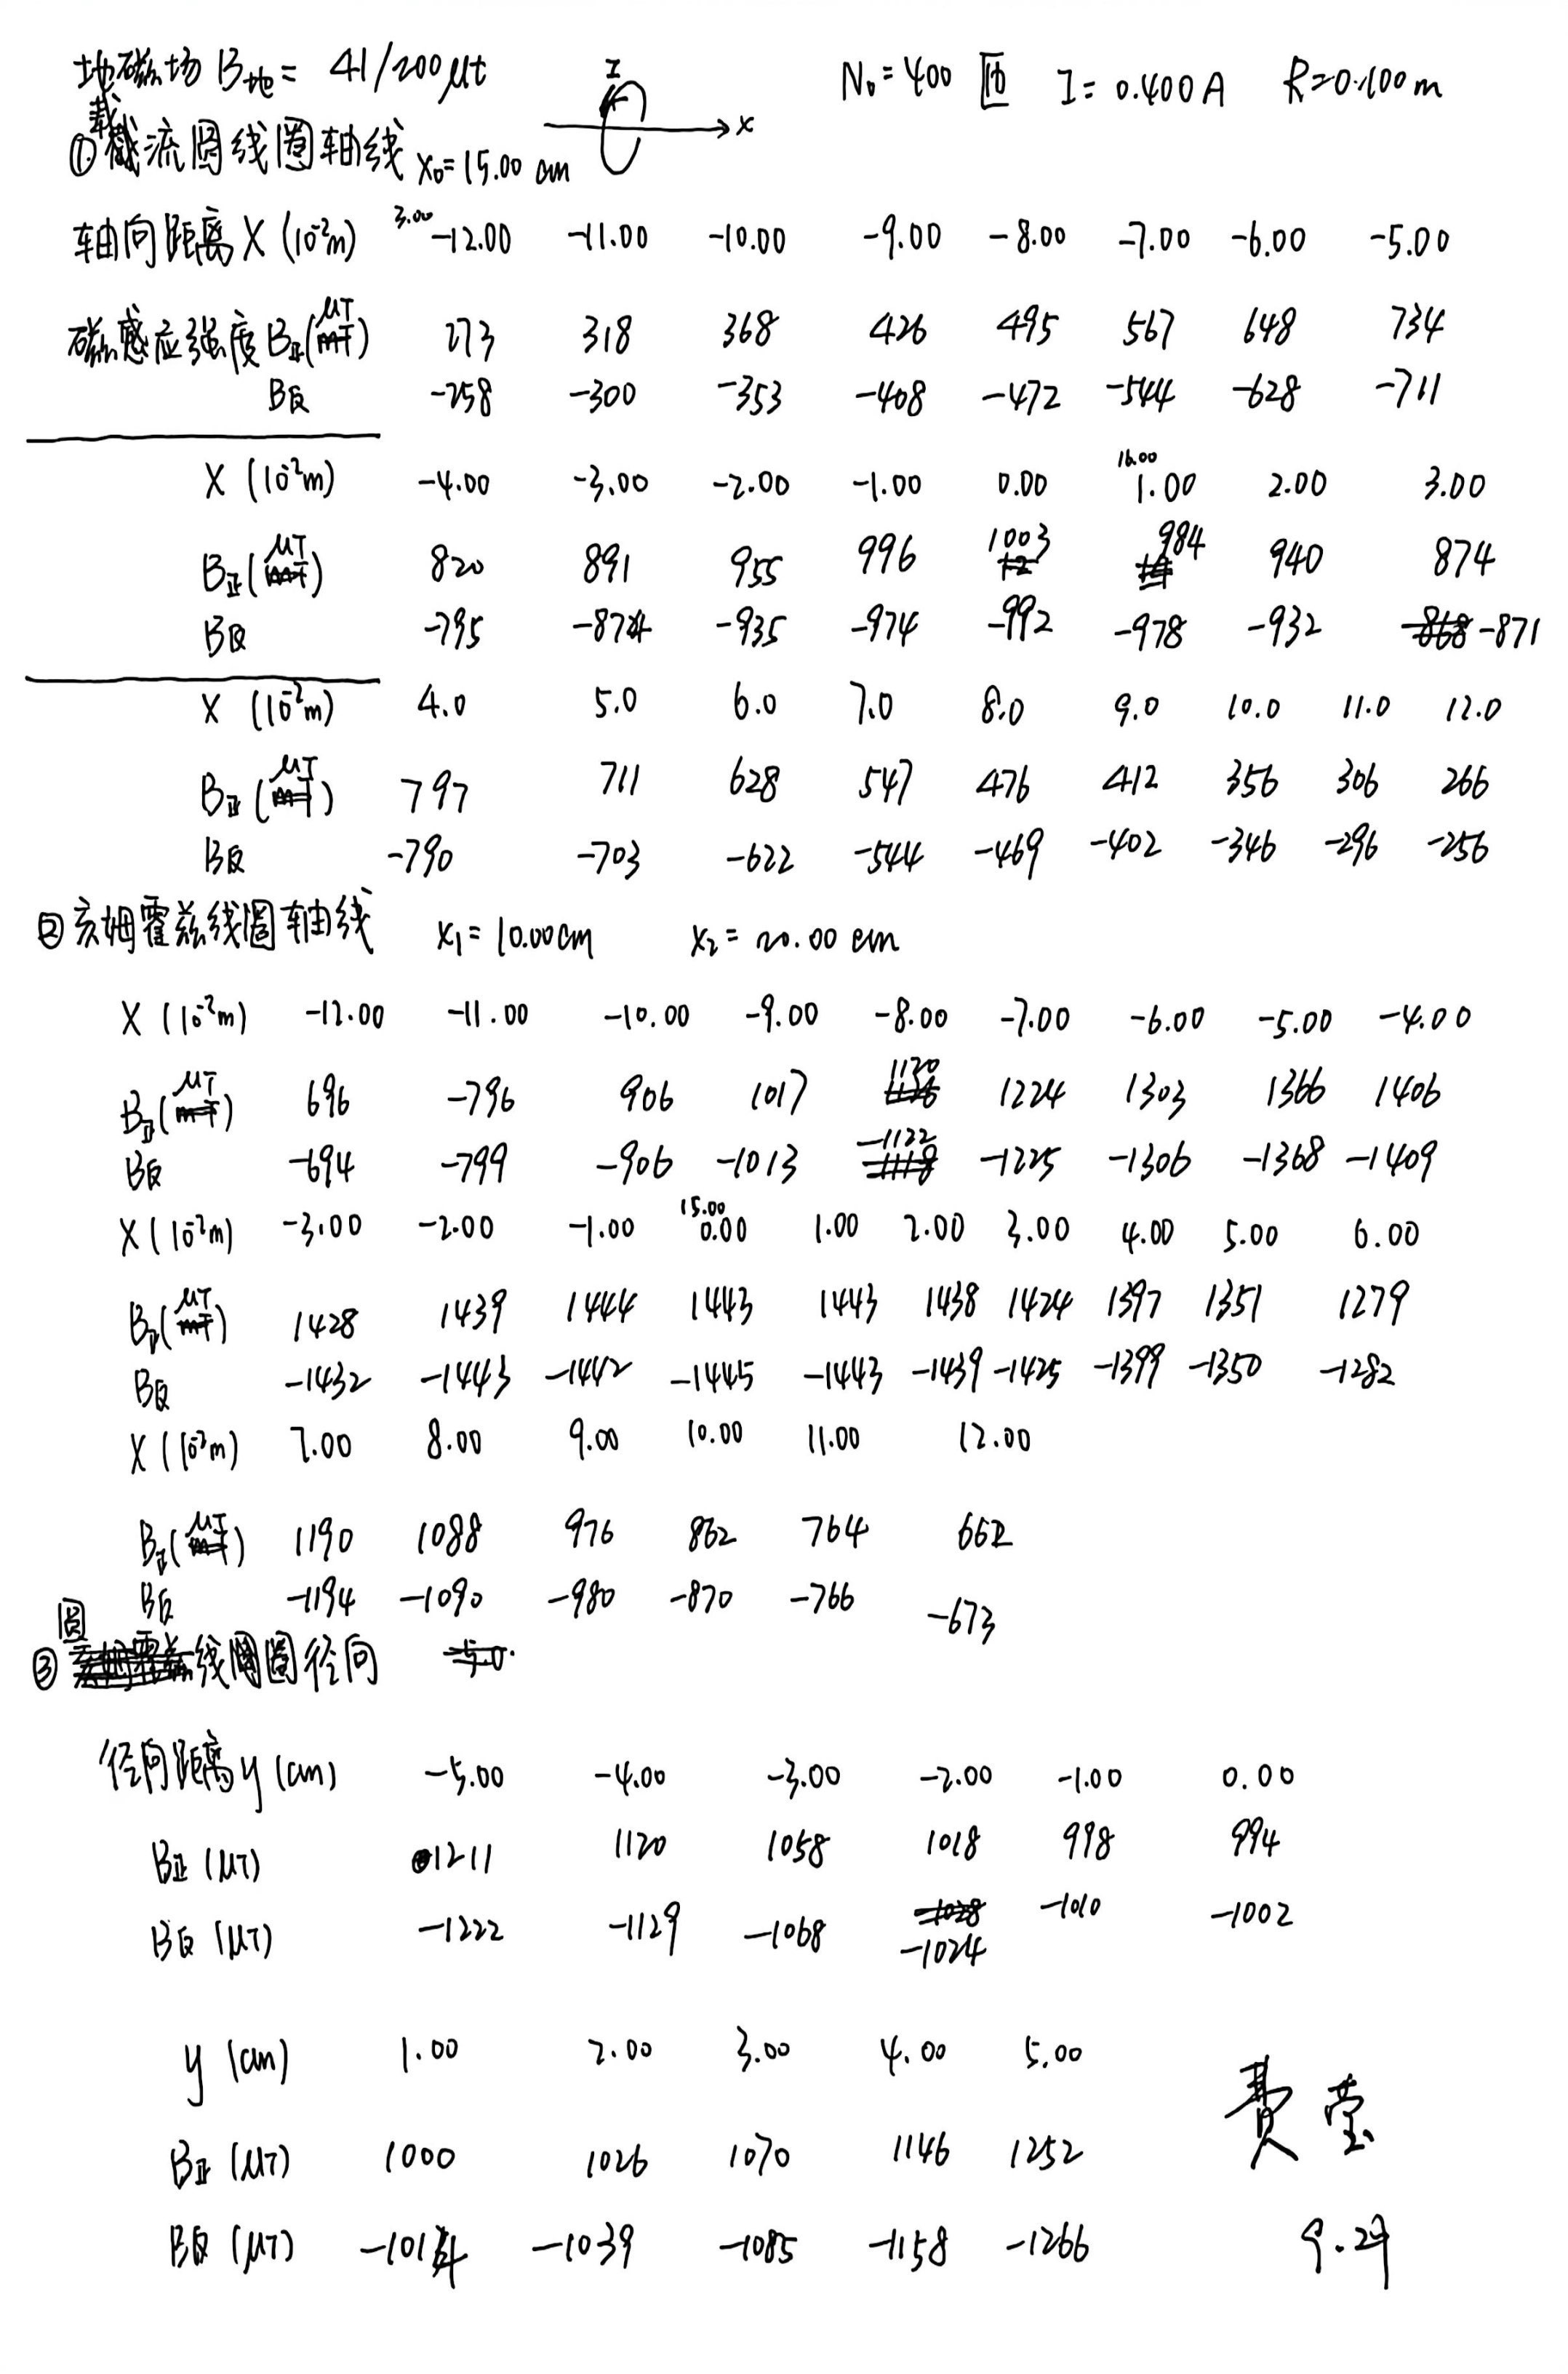 地磁场 B地 = 41/200 μt
I
x
N₀=400 匝 I=0.400A R=0.100m
①载流圆线圈轴线 X₀=15.00 cm
3.00
轴向距离X (10⁻²m) -12.00 -11.00 -10.00 -9.00 -8.00 -7.00 -6.00 -5.00
磁感应强度B正(μT) 273 318 368 426 495 567 648 734
B反 -258 -300 -353 -408 -472 -544 -628 -711
16.00
X (10⁻²m) -4.00 -3.00 -2.00 -1.00 0.00 1.00 2.00 3.00
B正(μT) 820 891 955 996 1003 984 940 874
B反 -795 -874 -935 -974 -992 -978 -932 -871
X (10⁻²m) 4.0 5.0 6.0 7.0 8.0 9.0 10.0 11.0 12.0
B正(μT) 797 711 628 547 476 412 356 306 266
B反 -790 -703 -622 -544 -469 -402 -346 -296 -256
②亥姆霍兹线圈轴线 X₁=10.00cm X₂=20.00cm
X (10⁻²m) -12.00 -11.00 -10.00 -9.00 -8.00 -7.00 -6.00 -5.00 -4.00
B正(μT) 696 -796 906 1017 1130 1224 1303 1366 1406
B反 -694 -799 -906 -1013 -1122 -1225 -1306 -1368 -1409
15.00
X (10⁻²m) -3.00 -2.00 -1.00 0.00 1.00 2.00 3.00 4.00 5.00 6.00
B正(μT) 1428 1439 1444 1443 1443 1438 1424 1397 1351 1279
B反 -1432 -1443 -1442 -1445 -1443 -1439 -1425 -1399 -1350 -1282
X (10⁻²m) 7.00 8.00 9.00 10.00 11.00 12.00
B正(μT) 1190 1088 976 862 764 662
B反 -1194 -1090 -980 -870 -766 -673
③圆线圈径向
径向距离y (cm) -5.00 -4.00 -3.00 -2.00 -1.00 0.00
B正 (μT) 1211 1120 1058 1018 998 994
B反 (μT) -1222 -1129 -1068 -1024 -1010 -1002
y (cm) 1.00 2.00 3.00 4.00 5.00
B正 (μT) 1000 1026 1070 1146 1252
B反 (μT) -1014 -1039 -1085 -1158 -1266
费莹
9.29